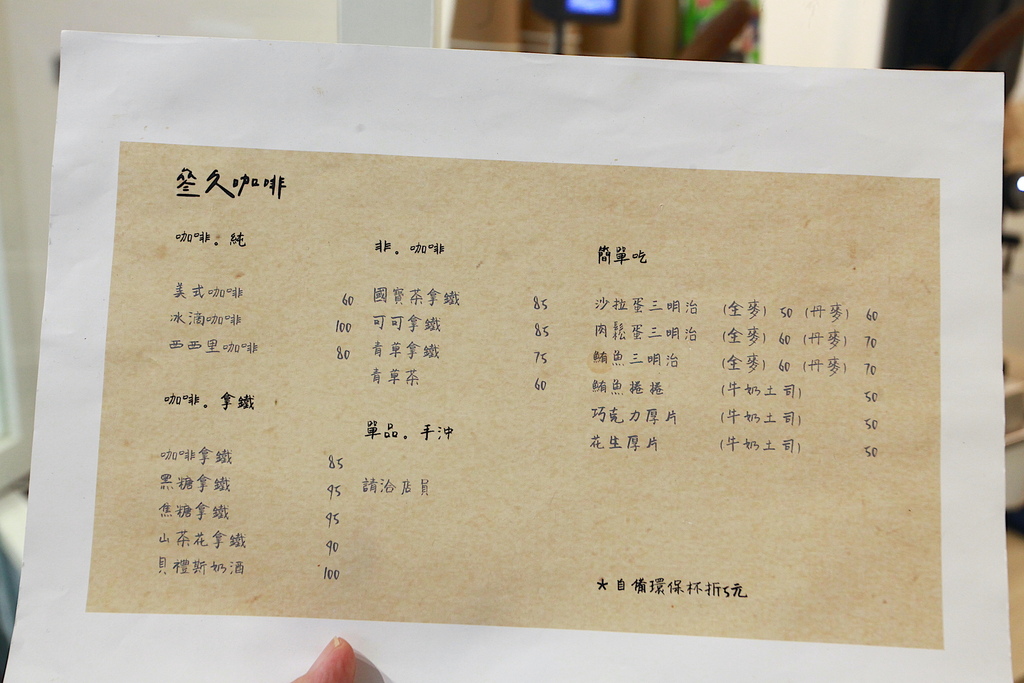 叁久咖啡
咖啡。純
美式咖啡 60
冰滴咖啡 100
西西里咖啡 80
咖啡。拿鐵
咖啡拿鐵 85
黑糖拿鐵 95
焦糖拿鐵 95
山茶花拿鐵 90
貝禮斯奶酒 100
非。咖啡
國寶茶拿鐵 85
可可拿鐵 85
青草拿鐵 75
青草茶 60
單品。手沖
請洽店員
簡單吃
沙拉蛋三明治 (全麥) 50 (丹麥) 60
肉鬆蛋三明治 (全麥) 60 (丹麥) 70
鮪魚三明治 (全麥) 60 (丹麥) 70
鮪魚捲捲 (牛奶土司) 50
巧克力厚片 (牛奶土司) 50
花生厚片 (牛奶土司) 50
*自備環保杯折5元